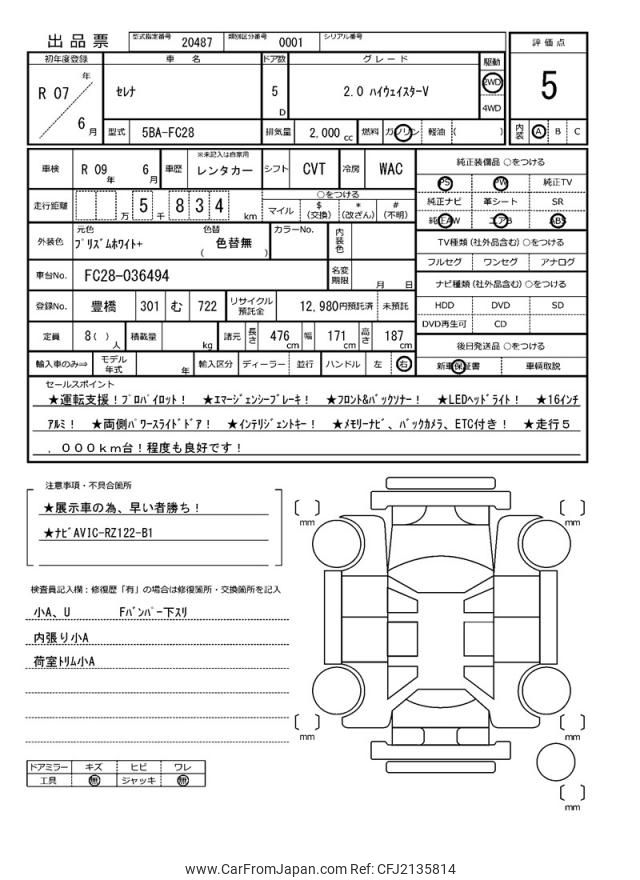 出品票 型式指定番号 20487 類別区分番号 0001 シリアル番号
評価点
5
内装 A B C
初年度登録 車名 ドア数 グレード 駆動
R 07 年 6 月
セレナ 5 D 2.0 ハイウェイスターV 2WD 4WD
型式 5BA-FC28 排気量 2,000 cc 燃料 ガソリン 軽油 ( )
車検 R 09 年 6 月 車歴 ※未記入は自家用 レンタカー シフト CVT 冷房 WAC
走行距離 万 5 千 8 3 4 km
○をつける
マイル $ (交換) * (改ざん) # (不明)
外装色 元色 プリズムホワイト+ 色替 ( 色替無 ) カラーNo. 内装色
車台No. FC28-036494 名変期限 月 日
登録No. 豊橋 301 む 722 リサイクル預託金 12,980円預託済 未預託
定員 8( ) 人 積載量 kg 諸元 長さ 476 cm 幅 171 cm 高さ 187 cm
輸入車のみ⇒ モデル年式 年 輸入区分 ディーラー 並行 ハンドル 左 右
純正装備品 ○をつける
PS PW 純正TV
純正ナビ 革シート SR
純正AW エアB ABS
TV種類 (社外品含む) ○をつける
フルセグ ワンセグ アナログ
ナビ種類 (社外品含む) ○をつける
HDD DVD SD
DVD再生可 CD
後日発送品 ○をつける
新車保証書 車輌取説
セールスポイント
★運転支援!プロパイロット! ★エマージェンシーブレーキ! ★フロント&バックソナー! ★LEDヘッドライト! ★16インチ
アルミ! ★両側パワースライドドア! ★インテリジェントキー! ★メモリーナビ、バックカメラ、ETC付き! ★走行5
,000km台!程度も良好です!
注意事項・不具合箇所
★展示車の為、早い者勝ち!
★ナビAVIC-RZ122-B1
検査員記入欄:修復歴「有」の場合は修復箇所・交換箇所を記入
小A、U Fバンパー下スリ
内張り小A
荷室トリム小A
ドアミラー キズ ヒビ ワレ
工具 無 ジャッキ 無
[ ] mm
[ ] mm
[ ] mm
[ ] mm
[ ] mm
www.CarFromJapan.com Ref: CFJ2135814